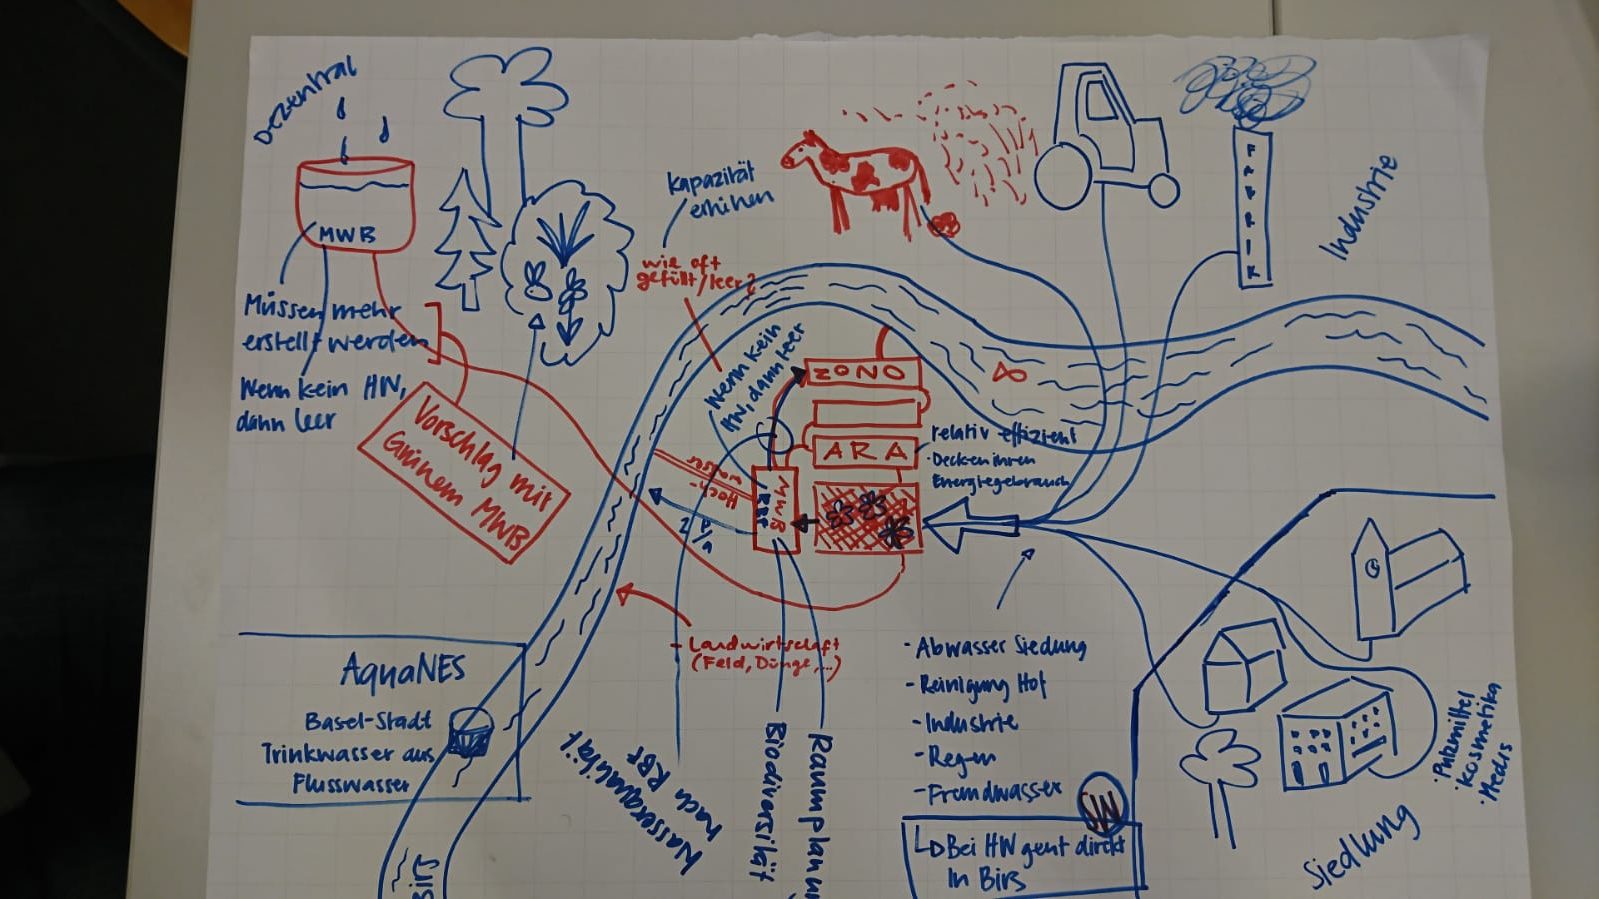 Dezentral
MWB
Müssen mehr
erstellt werden
Wenn kein HW,
dann leer
Vorschlag mit
Grünem MWB
Kapazität
erhöhen
wie oft
gefüllt/leer?
Wenn kein
HW, dann leer
FABRIK
Industrie
OZONO
ARA
relativ effizient
· Decken ihren
Energiegebrauch
MWB
RBF
Hoch-
wasser
- Landwirtschaft
(Feld, Dünge,...)
AquaNES
Basel-Stadt
Trinkwasser aus
Flusswasser
Birs
Wasserqualität
nach RBF
Biodiversität
Raumplanung
- Abwasser Siedlung
- Reinigung Hof
- Industrie
- Regen
- Fremdwasser
SW
Bei HW geht direkt
In Birs
· Putzmittel
· Kosmetika
· Medis
Siedlung